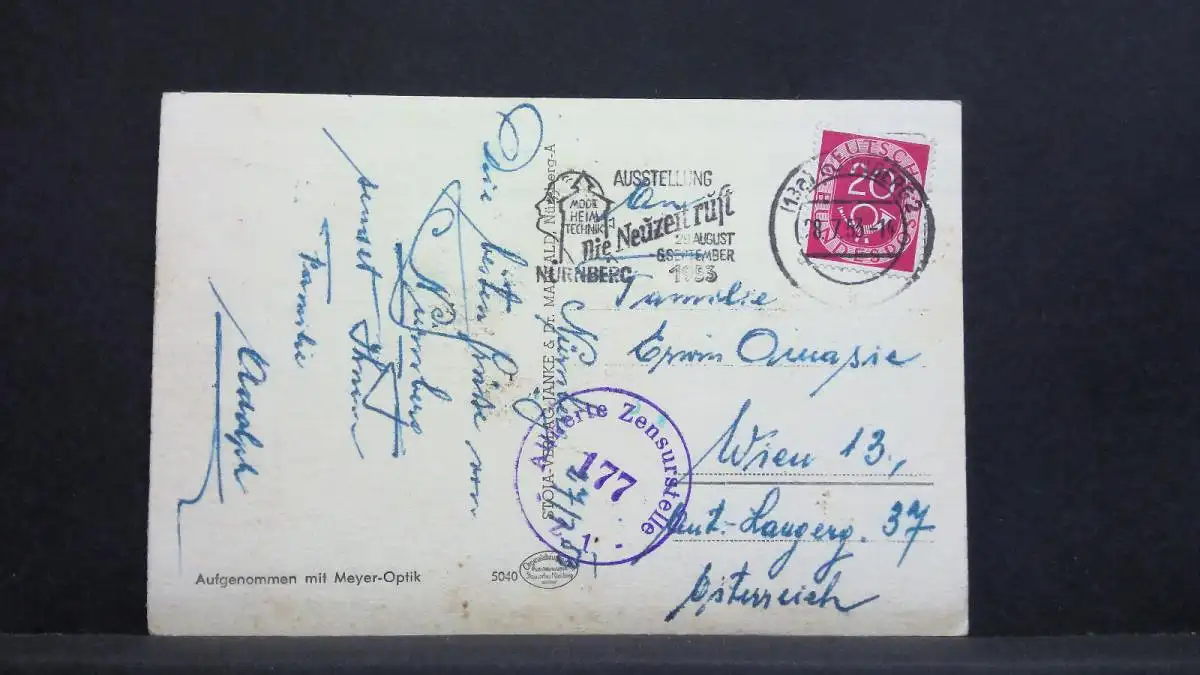 Die
besten Grüße von
Nürnberg
sendet Ihnen
Familie
Adolph
Nürnberg
STOJA-VERLAG JANKE & Dr. MAIWALD, Nürnberg-A
AUSSTELLUNG
MODE
HEIM
TECHNIK
Die Neuzeit ruft
29. AUGUST
6. SEPTEMBER
NÜRNBERG 1953
(13a)
28.7.53
DEUTSCHE
BUNDESPOST
20
An
Familie
Erwin
Wien 13,
37
Österreich
Alliierte Zensurstelle
177
1
Aufgenommen mit Meyer-Optik
5040